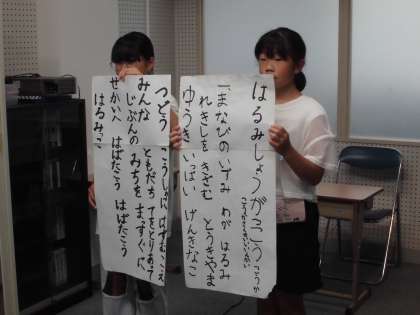 はるみしょうがっこう こうか
一まなびのいずみ わが はるみ
れきしを きざむ とうきやま
ゆうき いっぱい げんきなこ
つどう こうしゃに はずむこえ
みんな ともだち てをとりあって
じぶんの みちを まっすぐに
せかいへ はばたこう はばたこう
はるみっこ